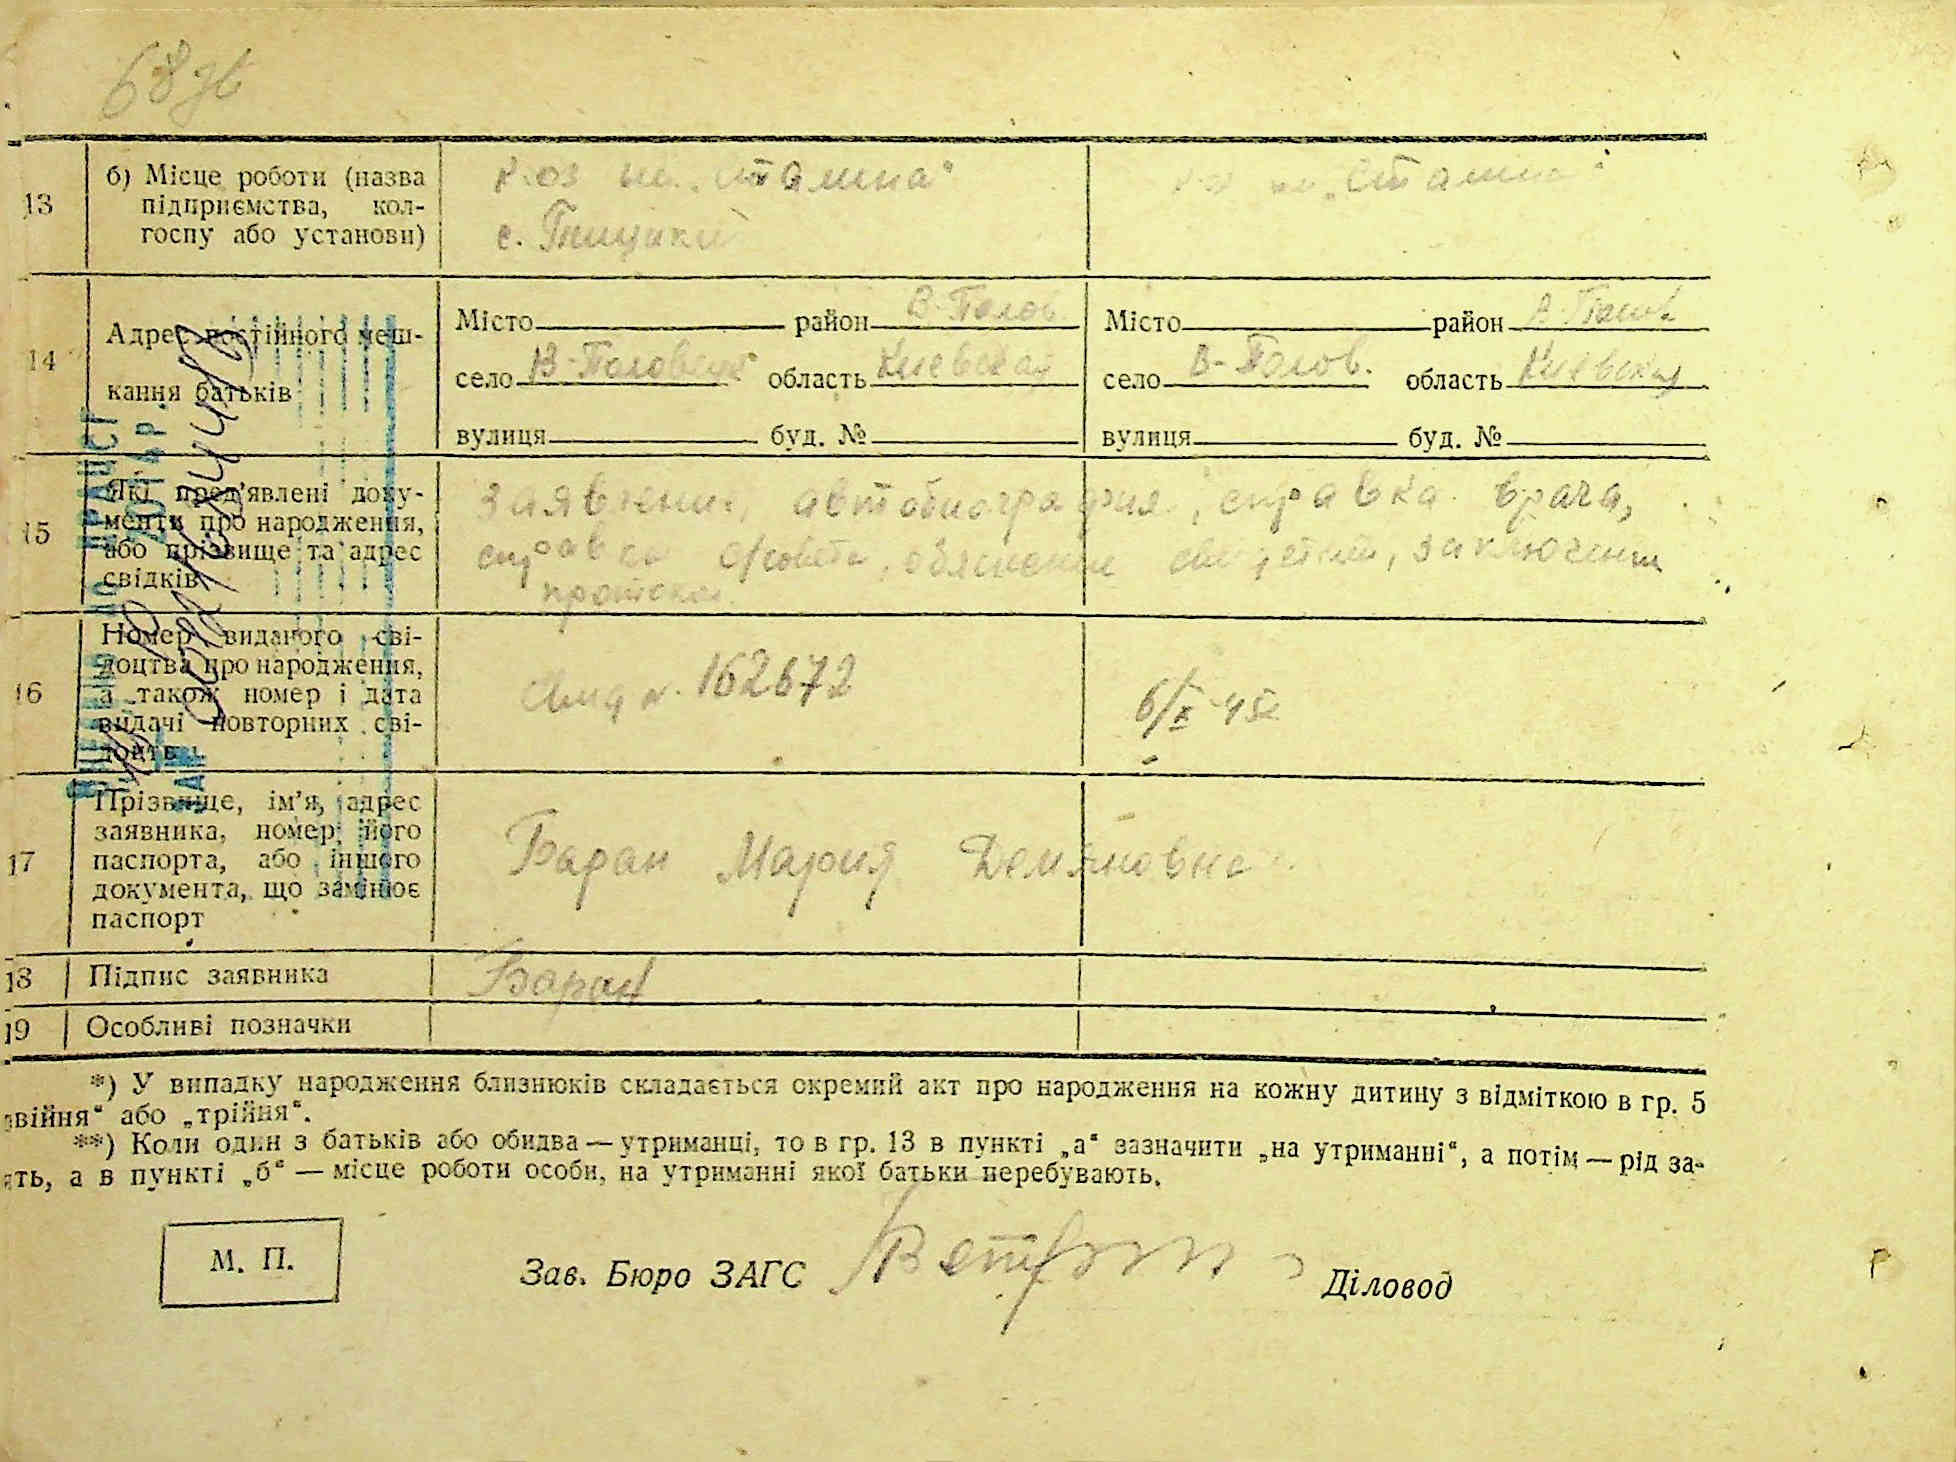 68 зв
13
б) Місце роботи (назва
підприємства, кол-
госпу або установи)
к-оз им. „Сталина“
с. Пищики
к-оз им. „Сталина“
14
Адрес постійного меш-
кання батьків
Місто район В-Полов.
село В-Половецк область Киевская
вулиця буд. №
Місто район В-Полов.
село В-Полов. область Киевская
вулиця буд. №
15
Які пред’явлені доку-
менти про народження,
або прізвище та адрес
свідків
Заявление, автобиография, справка врача,
справка с/совета, объяснение свидетелей, заключение
16
Номер виданого сві-
доцтва про народження,
а також номер і дата
видачі повторних сві-
доцтв
162672
6/X-45
17
Прізвище, ім’я, адрес
заявника, номер його
паспорта, або іншого
документа, що замінює
паспорт
Баран Мария Демяновна
18
Підпис заявника
Баран
19
Особливі позначки
*) У випадку народження близнюків складається окремий акт про народження на кожну дитину з відміткою в гр. 5
двійня“ або „трійня“.
**) Коли один з батьків або обидва — утриманці, то в гр. 13 в пункті „а“ зазначити „на утриманні“, а потім — рід за-
ять, а в пункті „б“ — місце роботи особи, на утриманні якої батьки перебувають.
М. П.
Зав. Бюро ЗАГС
Діловод